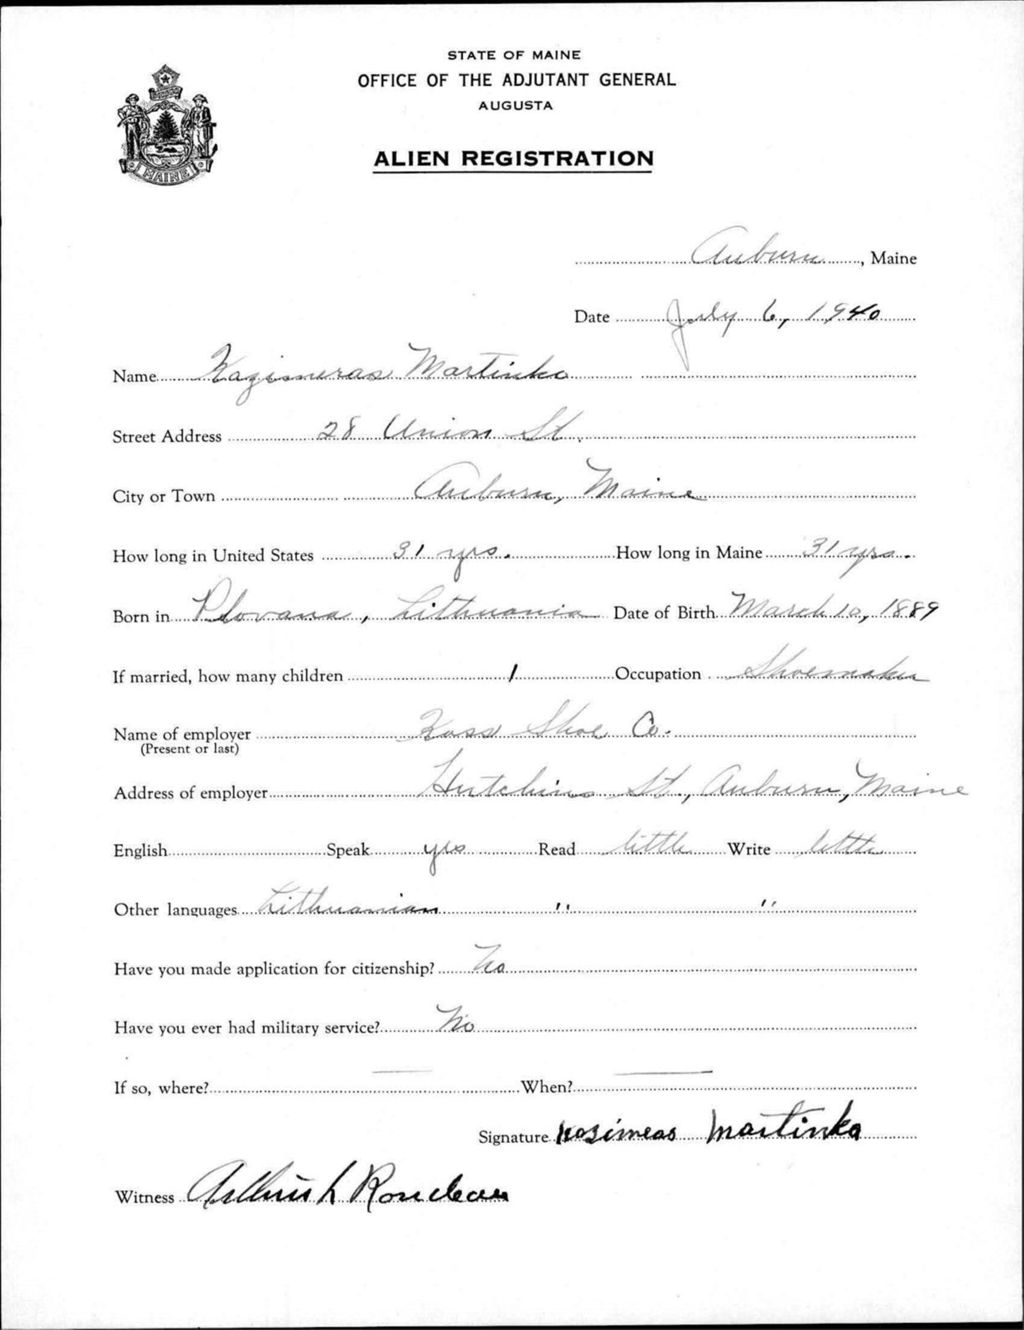 STATE OF MAINE
OFFICE OF THE ADJUTANT GENERAL
AUGUSTA
MAINE
ALIEN REGISTRATION
Auburn, Maine
Date July 6, 1940
Name Kazimeras Martinko
Street Address 28 Union St.
City or Town Auburn, Maine
How long in United States 31 yrs. How long in Maine 31 yrs.
Born in Plovana, Lithuania Date of Birth March 10, 1889
If married, how many children 1 Occupation Shoemaker
Name of employer Koss Shoe Co.
(Present or last)
Address of employer Hutchins St., Auburn, Maine
English Speak yes Read little Write little
Other languages Lithuanian " "
Have you made application for citizenship? No
Have you ever had military service? No
If so, where? — When? —
Signature Kosimeas Martinko
Witness Arthur L Rondeau